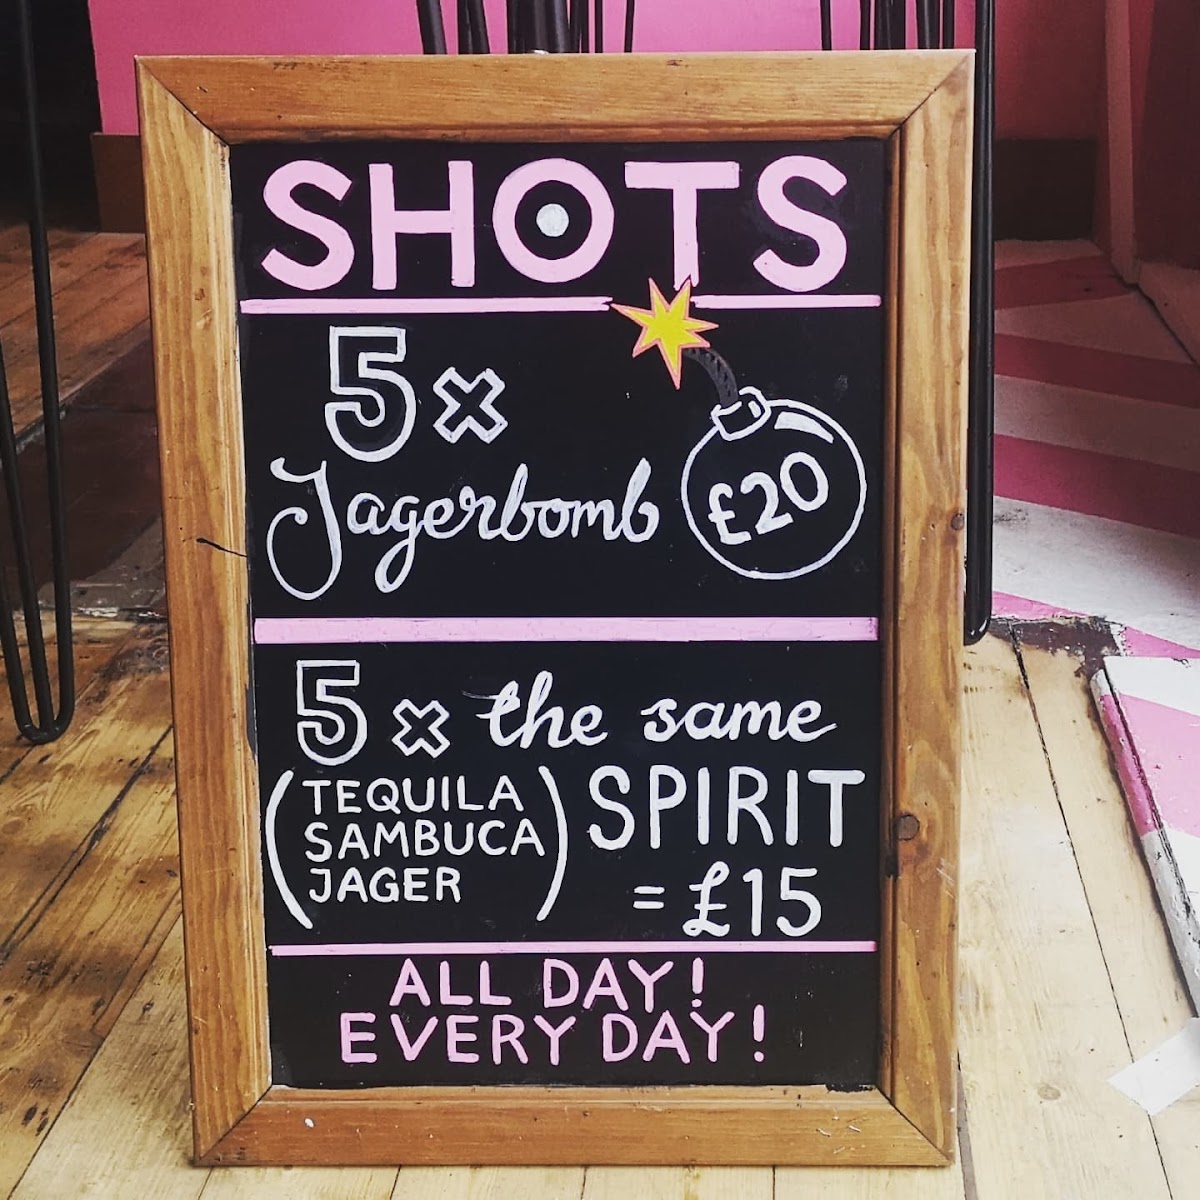 SHOTS
5 x
Jagerbomb £20
5 x the same
(TEQUILA
SAMBUCA
JAGER) SPIRIT
= £15
ALL DAY!
EVERY DAY!